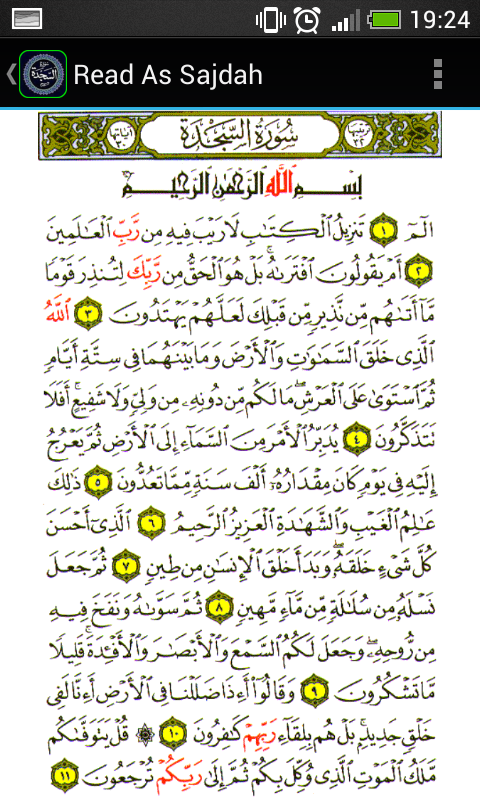 19:24
Read As Sajdah
ترتيبها ٣٢ سُورَةُ السَّجْدَةِ آياتها ٣٠
بِسْمِ اللَّهِ الرَّحْمَٰنِ الرَّحِيمِ
الٓمٓ ١ تَنزِيلُ ٱلْكِتَٰبِ لَا رَيْبَ فِيهِ مِن رَّبِّ ٱلْعَٰلَمِينَ
٢ أَمْ يَقُولُونَ ٱفْتَرَىٰهُ ۚ بَلْ هُوَ ٱلْحَقُّ مِن رَّبِّكَ لِتُنذِرَ قَوْمًا
مَّآ أَتَىٰهُم مِّن نَّذِيرٍ مِّن قَبْلِكَ لَعَلَّهُمْ يَهْتَدُونَ ٣ ٱللَّهُ
ٱلَّذِى خَلَقَ ٱلسَّمَٰوَٰتِ وَٱلْأَرْضَ وَمَا بَيْنَهُمَا فِى سِتَّةِ أَيَّامٍ
ثُمَّ ٱسْتَوَىٰ عَلَى ٱلْعَرْشِ ۖ مَا لَكُم مِّن دُونِهِۦ مِن وَلِىٍّ وَلَا شَفِيعٍ ۚ أَفَلَا
تَتَذَكَّرُونَ ٤ يُدَبِّرُ ٱلْأَمْرَ مِنَ ٱلسَّمَآءِ إِلَى ٱلْأَرْضِ ثُمَّ يَعْرُجُ
إِلَيْهِ فِى يَوْمٍ كَانَ مِقْدَارُهُۥٓ أَلْفَ سَنَةٍ مِّمَّا تَعُدُّونَ ٥ ذَٰلِكَ
عَٰلِمُ ٱلْغَيْبِ وَٱلشَّهَٰدَةِ ٱلْعَزِيزُ ٱلرَّحِيمُ ٦ ٱلَّذِىٓ أَحْسَنَ
كُلَّ شَىْءٍ خَلَقَهُۥ ۖ وَبَدَأَ خَلْقَ ٱلْإِنسَٰنِ مِن طِينٍ ٧ ثُمَّ جَعَلَ
نَسْلَهُۥ مِن سُلَٰلَةٍ مِّن مَّآءٍ مَّهِينٍ ٨ ثُمَّ سَوَّىٰهُ وَنَفَخَ فِيهِ
مِن رُّوحِهِۦ ۖ وَجَعَلَ لَكُمُ ٱلسَّمْعَ وَٱلْأَبْصَٰرَ وَٱلْأَفْـِٔدَةَ ۚ قَلِيلًا
مَّا تَشْكُرُونَ ٩ وَقَالُوٓا۟ أَءِذَا ضَلَلْنَا فِى ٱلْأَرْضِ أَءِنَّا لَفِى
خَلْقٍ جَدِيدٍۭ ۚ بَلْ هُم بِلِقَآءِ رَبِّهِمْ كَٰفِرُونَ ١٠ ۞ قُلْ يَتَوَفَّىٰكُم
مَّلَكُ ٱلْمَوْتِ ٱلَّذِى وُكِّلَ بِكُمْ ثُمَّ إِلَىٰ رَبِّكُمْ تُرْجَعُونَ ١١